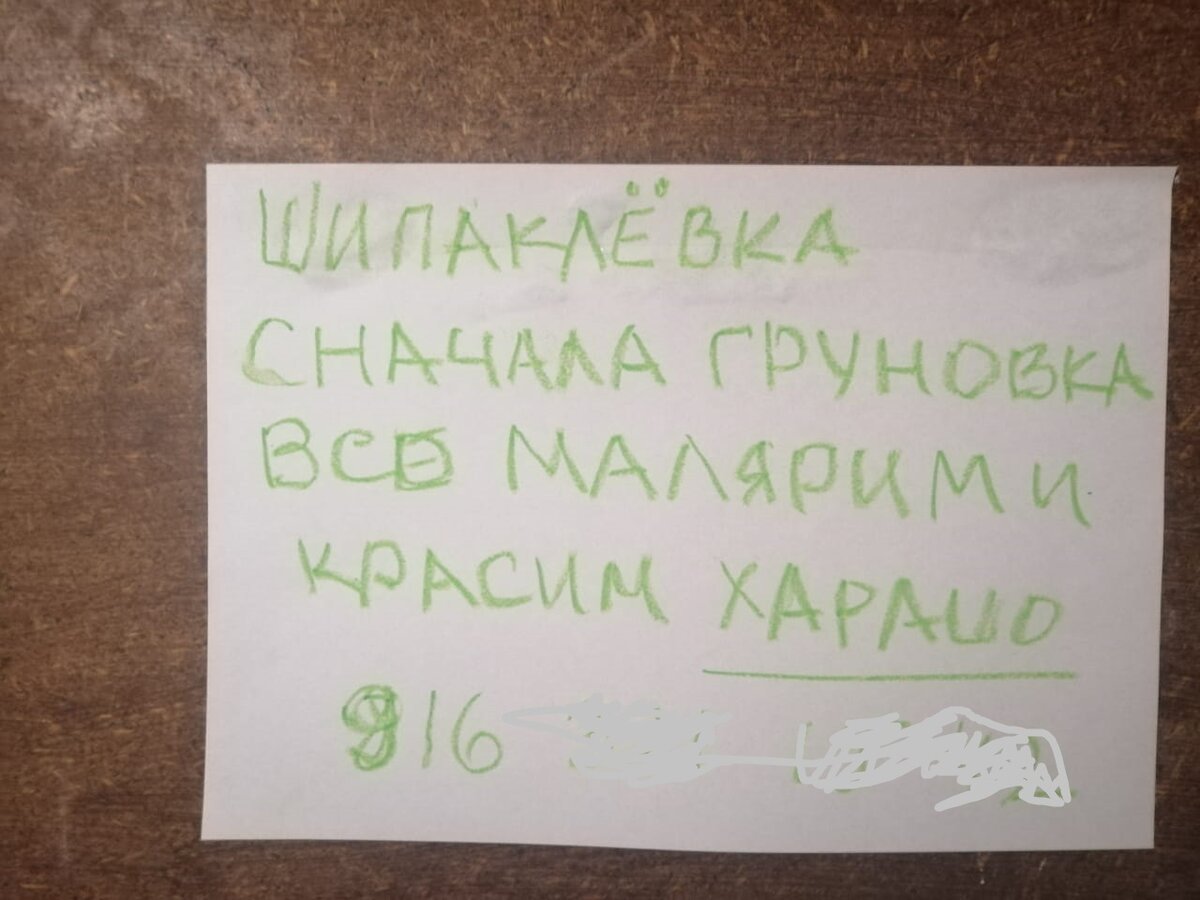 ШИПАКЛЁВКА
СНАЧАЛА ГРУНОВКА
ВСЕ МАЛЯРИМИ
КРАСИМ ХАРАШО
916